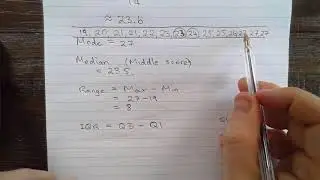 ≈ 23.6
19, 20, 21, 21, 22, 23, 23, 24, 25, 25, 26, 27, 27, 27
Mode = 27
Median (Middle score)
= 23.5
Range = Max - Min
= 27-19
= 8
IQR = Q3 - Q1